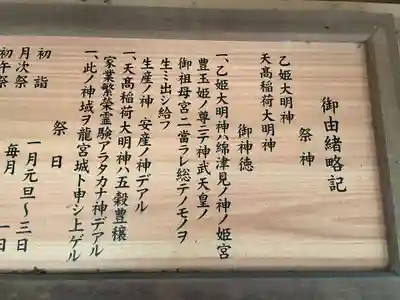 御由緒略記
祭神
乙姫大明神
天高稲荷大明神
御神徳
一、乙姫大明神ハ綿津見ノ神ノ姫宮
豊玉姫ノ尊ニテ神武天皇ノ
御祖母宮ニ當ラレ総テノモノヲ
生ミ出シ給フ
生産ノ神 安産ノ神デアル
一、天高稲荷大明神ハ五穀豊穣
家業繁栄霊験アラタカナ神デアル
一、此ノ神域ヲ龍宮城ト申シ上ゲル
祭日
初詣 一月元旦〜三日
月次祭 毎月 一日
初午祭